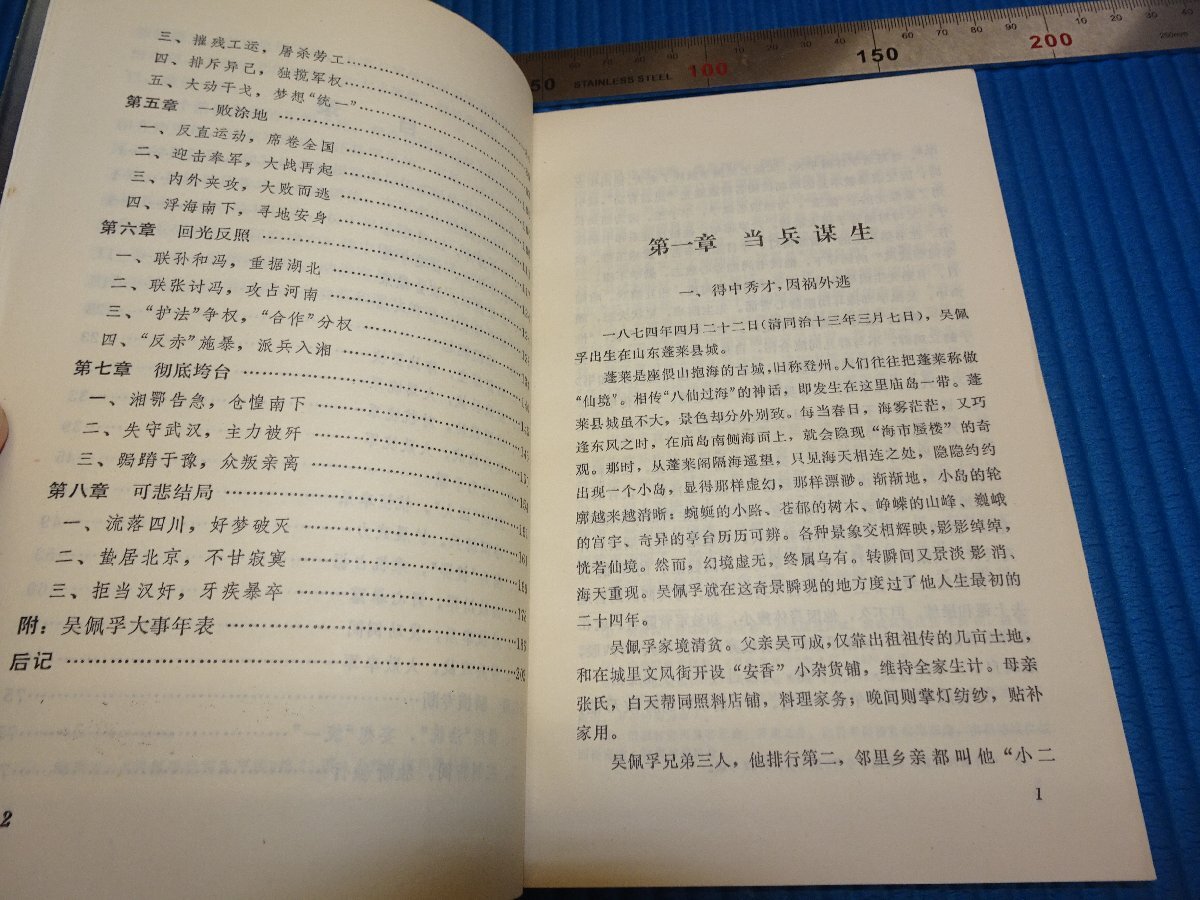 三、摧残工运，屠杀劳工
四、排斥异己，独揽军权
五、大动干戈，梦想“统一”
第五章 一败涂地
一、反直运动，席卷全国
二、迎击奉军，大战再起
三、内外夹攻，大败而逃
四、浮海南下，寻地安身
第六章 回光反照
一、联孙和冯，重据湖北
二、联张讨冯，攻占河南
三、“护法”争权，“合作”分权
四、“反赤”施暴，派兵入湘
第七章 彻底垮台
一、湘鄂告急，仓惶南下
二、失守武汉，主力被歼
三、跼蹐于豫，众叛亲离
第八章 可悲结局
一、流落四川，好梦破灭
二、蛰居北京，不甘寂寞
三、拒当汉奸，牙疾暴卒
附：吴佩孚大事年表
后记
2
50 STAINLESS STEEL 100 150 200
第一章 当兵谋生
一、得中秀才，因祸外逃
一八七四年四月二十二日（清同治十三年三月七日），吴佩
孚出生在山东蓬莱县城。
蓬莱是座偎山抱海的古城，旧称登州。人们往往把蓬莱称做
“仙境”。相传“八仙过海”的神话，即发生在这里庙岛一带。蓬
莱县城虽不大，景色却分外别致。每当春日，海雾茫茫，又巧
逢东风之时，在庙岛南侧海面上，就会隐现“海市蜃楼”的奇
观。那时，从蓬莱阁隔海遥望，只见海天相连之处，隐隐约约
出现一个小岛，显得那样虚幻，那样漂渺。渐渐地，小岛的轮
廓越来越清晰：蜿蜒的小路、苍郁的树木、峥嵘的山峰、巍峨
的宫宇、奇异的亭台历历可辨。各种景象交相辉映，影影绰绰，
恍若仙境。然而，幻境虚无，终属乌有。转瞬间又景淡影消、
海天重现。吴佩孚就在这奇景瞬现的地方度过了他人生最初的
二十四年。
吴佩孚家境清贫。父亲吴可成，仅靠出租祖传的几亩土地，
和在城里文风街开设“安香”小杂货铺，维持全家生计。母亲
张氏，白天帮同照料店铺，料理家务；晚间则掌灯纺纱，贴补
家用。
吴佩孚兄弟三人，他排行第二，邻里乡亲都叫他“小二
1